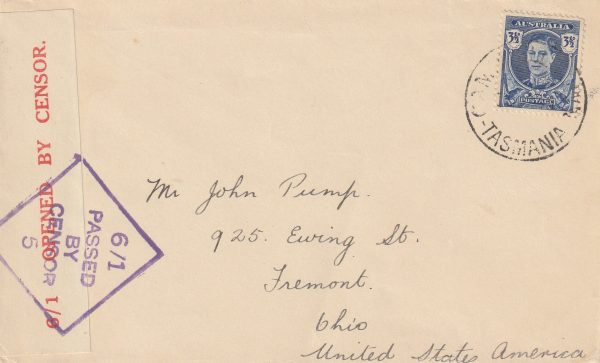 6/1 OPENED BY CENSOR.
6/1
PASSED
BY
CENSOR
5
AUSTRALIA
3½D 3½D
POSTAGE
TASMANIA
Mr John Pump.
925. Ewing St.
Fremont.
Ohio
United States America